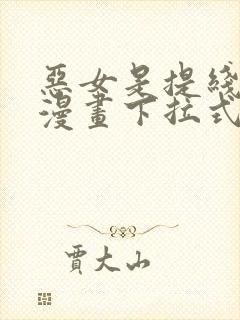 惡女是提綫
漫畫下拉式
賈大山